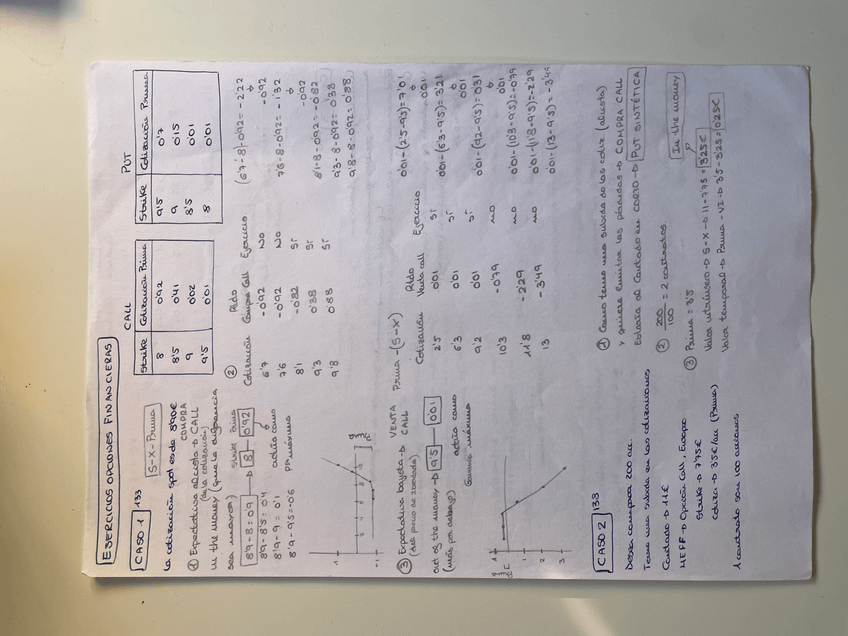 EJERCICIOS OPCIONES FINANCIERAS
CASO 1 133
S-X-Prima
La cotización spot es de 8'90€
① Expectativa alcista → CALL COMPRA
(de la cotización)
in the money (que la diferencia
sea mayor)
8'9-8=0'9 → Strike 8 — Prima 0'92
8'9-8'5=0'4
8'9-9=0'1
8'9-9'5=-0'6
actúa como
PP máxima
CALL
Strike Cotización Prima
8 0'92
8'5 0'41
9 0'02
9'5 0'01
PUT
Strike Cotización Prima
9'5 0'7
9 0'15
8'5 0'01
8 0'01
② Cotización Rtdo Compra Call Ejercicio
6'7 -0'92 NO (6'7-8)-0'92=-2'22 → -0'92
7'6 -0'92 NO 7'6-8-0'92=-1'32 → -0'92
8'1 -0'82 SÍ 8'1-8-0'92=-0'82
9'3 0'38 SÍ 9'3-8-0'92=0'38
9'8 0'88 SÍ 9'8-8-0'92=0'88
③ Expectativa bajista → VENTA CALL
out of the money → 9'5 — 0'01
(más por debajo)
actúa como
Ganancia máxima
Prima-(S-X)
Cotización Rtdo Venta call Ejercicio
2'5 0'01 SÍ 0'01-(2'5-9'5)=7'01 → 0'01
6'3 0'01 SÍ 0'01-(6'3-9'5)=3'21 → 0'01
9'2 0'01 SÍ 0'01-(9'2-9'5)=0'31 → 0'01
10'3 -0'79 NO 0'01-(10'3-9'5)=-0'79
11'8 -2'29 NO 0'01-(11'8-9'5)=-2'29
13 -3'49 NO 0'01-(13-9'5)=-3'49
CASO 2 133
Desea comprar 200 acc.
Teme una subida en las cotizaciones
Contado → 11€
MEFF → Opción Call. Europeo
Strike → 7'75€
cotiza → 3'5€/acc (Prima)
1 contrato son 100 acciones
① Como teme una subida de las cotiz (alcista)
y quiere limitar las pérdidas → COMPRA CALL
Estaría al contado en CORTO → PUT SINTÉTICA
② 200/100 = 2 contratos
③ Prima = 3'5
In the money
Valor intrínseco → S-X → 11-7'75=3'25€
Valor temporal → Prima-VI → 3'5-3'25=0'25€